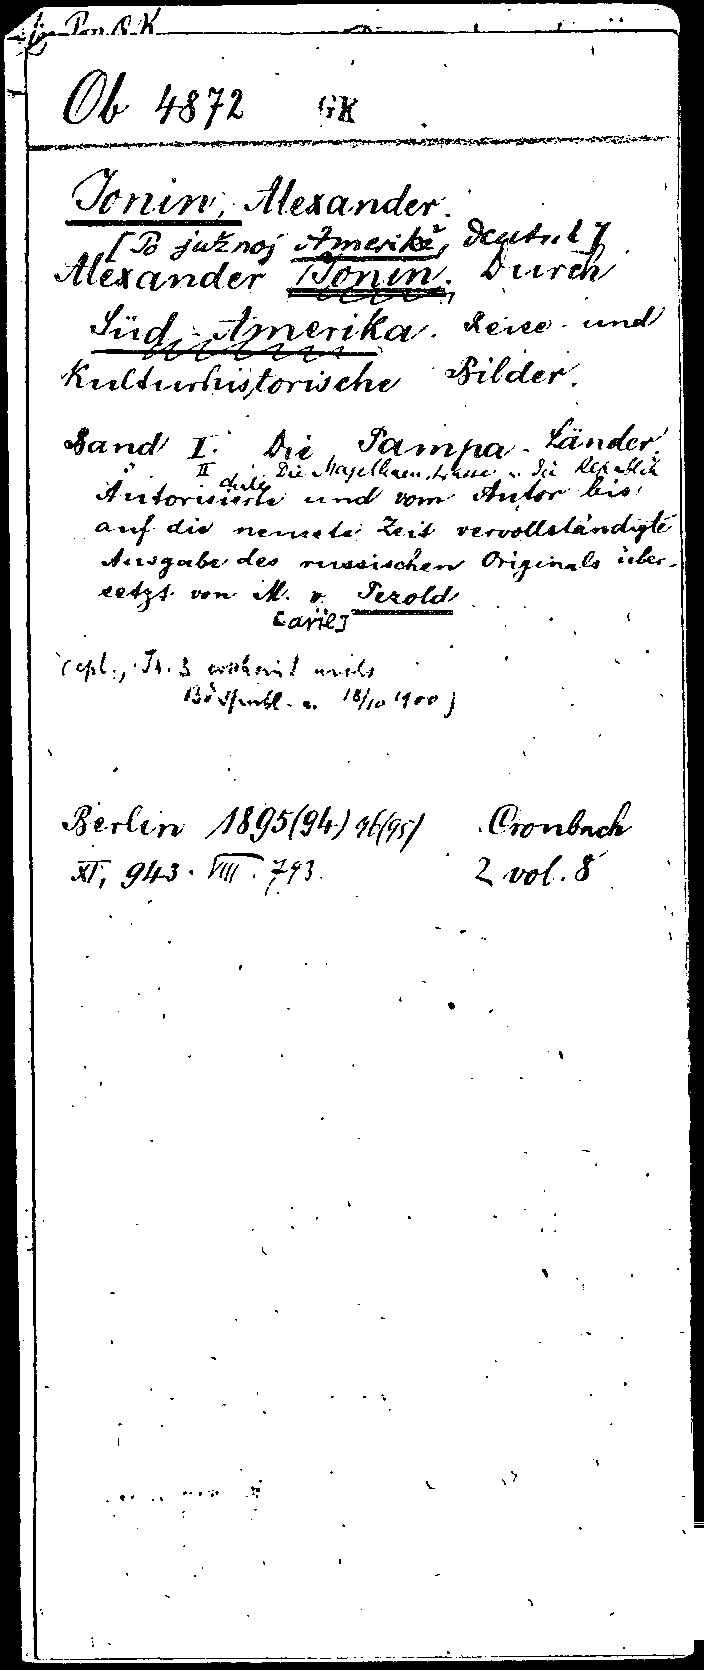 Ob 4872 GK
Jonin, Alexander.
[Po južnoj Amerikě, deutsch]
Alexander Jonin. Durch
Süd-Amerika. Reise- und
Kulturhistorische Bilder.
Band I. Die Pampa-Länder.
II Die Magelhaenstrasse u. die Republik Chile
Autorisierte und vom Autor bis
auf die neueste Zeit vervollständigte
Ausgabe des russischen Originals über-
setzt von M. v. Pezold
(cpl., Th. 3 erscheint nicht
18/10 1900)
Berlin 1895(94) 96(95) Cronbach
XI, 943. VIII. 793. 2 vol. 8